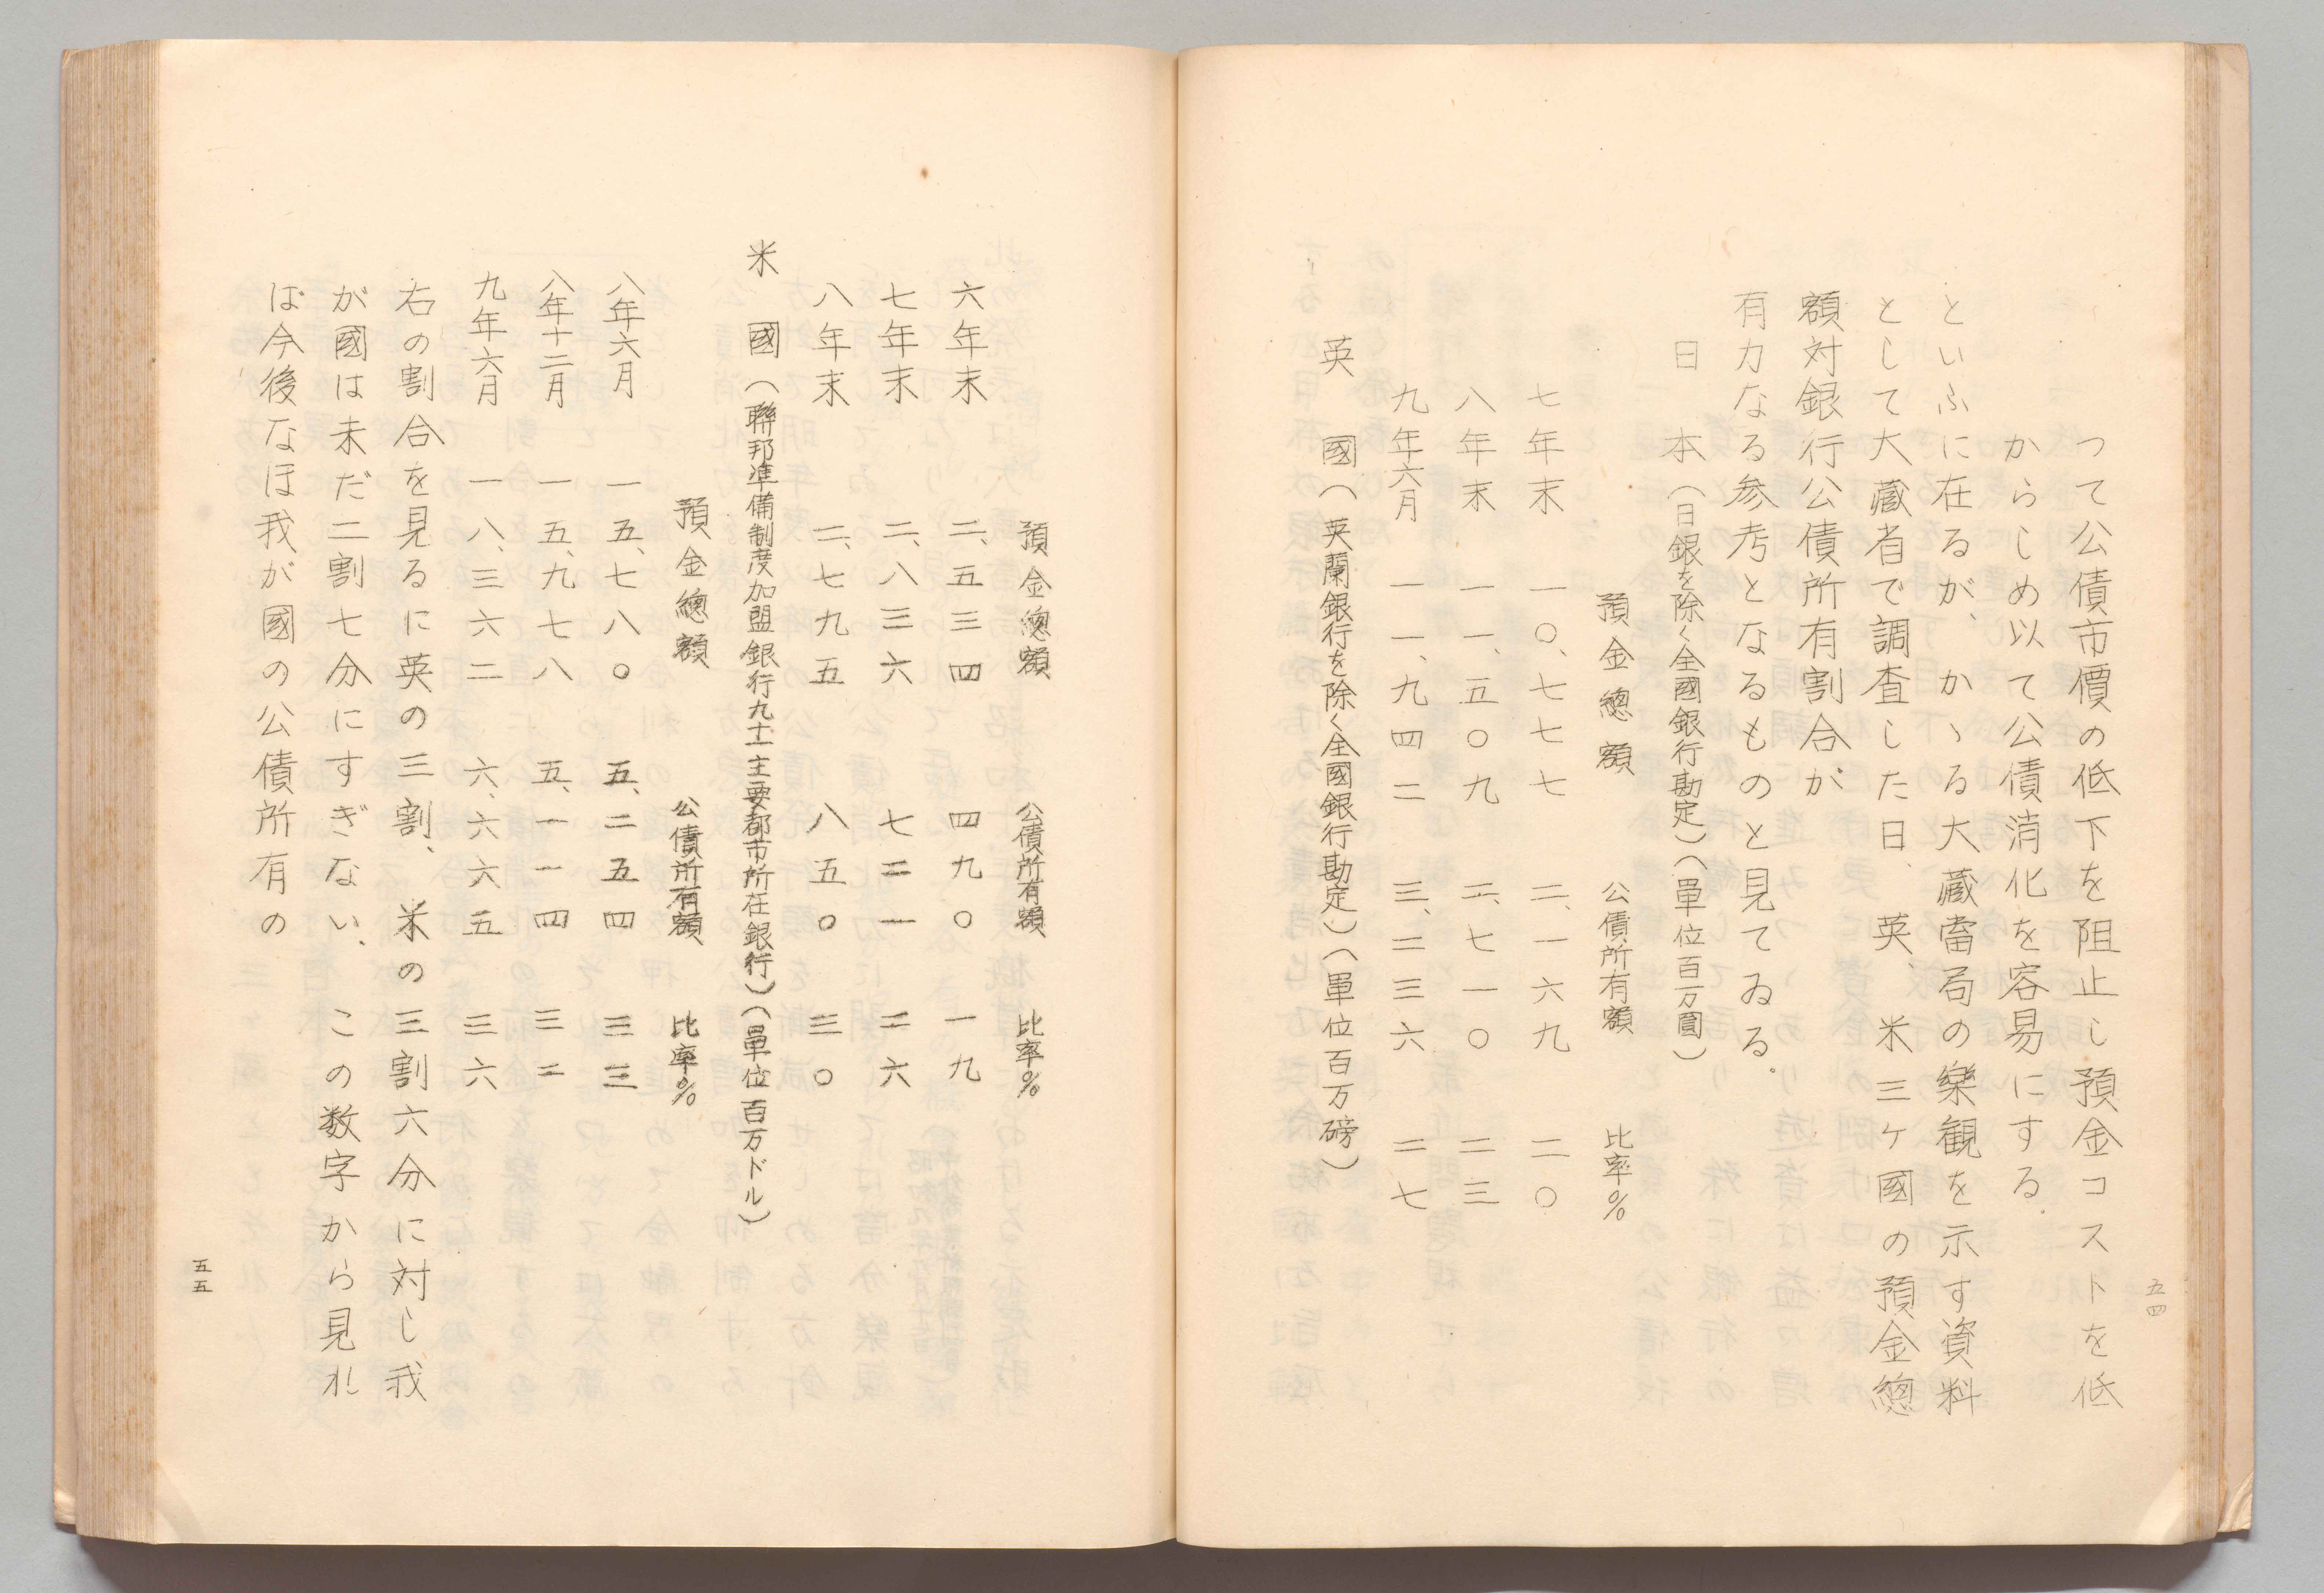 五四
つて公債市價の低下を阻止し預金コストを低
からしめ以て公債消化を容易にする.
といふに在るが、かゝる大藏當局の樂観を示す資料
として大藏省で調査した日、英、米三ケ國の預金總
額対銀行公債所有割合が
有力なる参考となるものと見てゐる.
日本(日銀を除く全國銀行勘定)(單位百万圓)
預金總額 公債所有額 比率%
七年末 一〇、七七七 二、一六九 二〇
八年末 一一、五〇九 二、七一〇 二三
九年六月 一一、九四二 三、二三六 二七
英國(英蘭銀行を除く全國銀行勘定)(單位百万磅)
預金總額 公債所有額 比率%
六年末 二、五三四 四九〇 一九
七年末 二、八三六 七二一 二六
八年末 二、七九五 八五〇 三〇
米國(聯邦準備制度加盟銀行九十一主要都市所在銀行)(單位百万ドル)
預金總額 公債所有額 比率%
八年六月 一五、七八〇 五、二五四 三三
八年十二月 一五、九七八 五、一一四 三二
九年六月 一八、三六二 六、六六五 三六
右の割合を見るに英の三割、米の三割六分に対し我
が國は未だ二割七分にすぎない、この数字から見れ
ば今後なほ我が國の公債所有の
五五